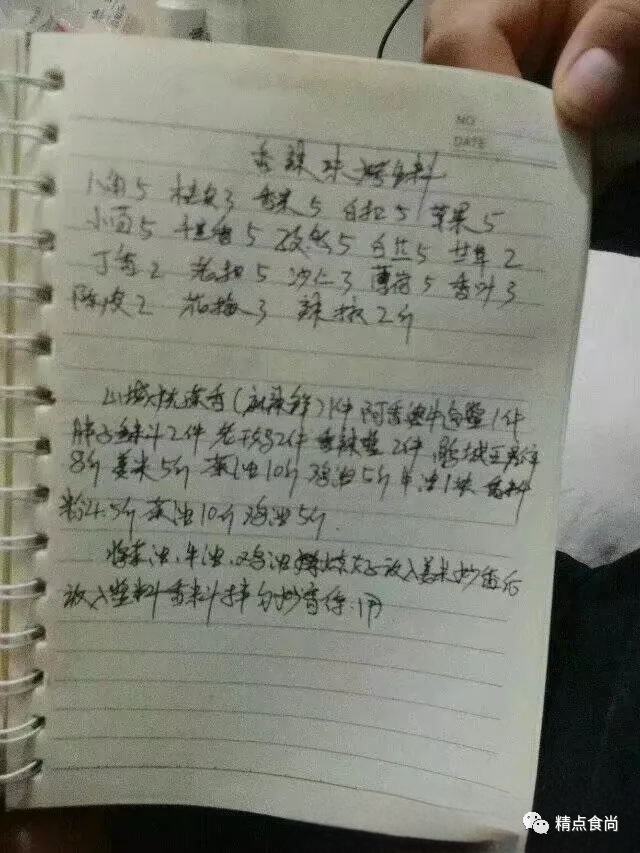 NO
DATE
香辣 烤鱼料
八角5 桂皮3 香果5 白扣5 苹果5
小茴5 5 5 白芷5 甘草2
丁香2 草扣5 沙仁3 薄荷5 香叶3
陈皮2 3 辣椒2斤
(麻辣鲜)1件 阿香婆牛肉酱1件
胖子鱼料2件 老干妈2件 香辣酱2件
8斤 姜米5斤 菜油10斤 鸡油5斤 牛油1块 香料
粉2.5斤 菜油10斤 鸡油5斤
将菜油、牛油、鸡油 放入姜米炒香后
放入酱料香料拌匀炒香待用
精点食尚